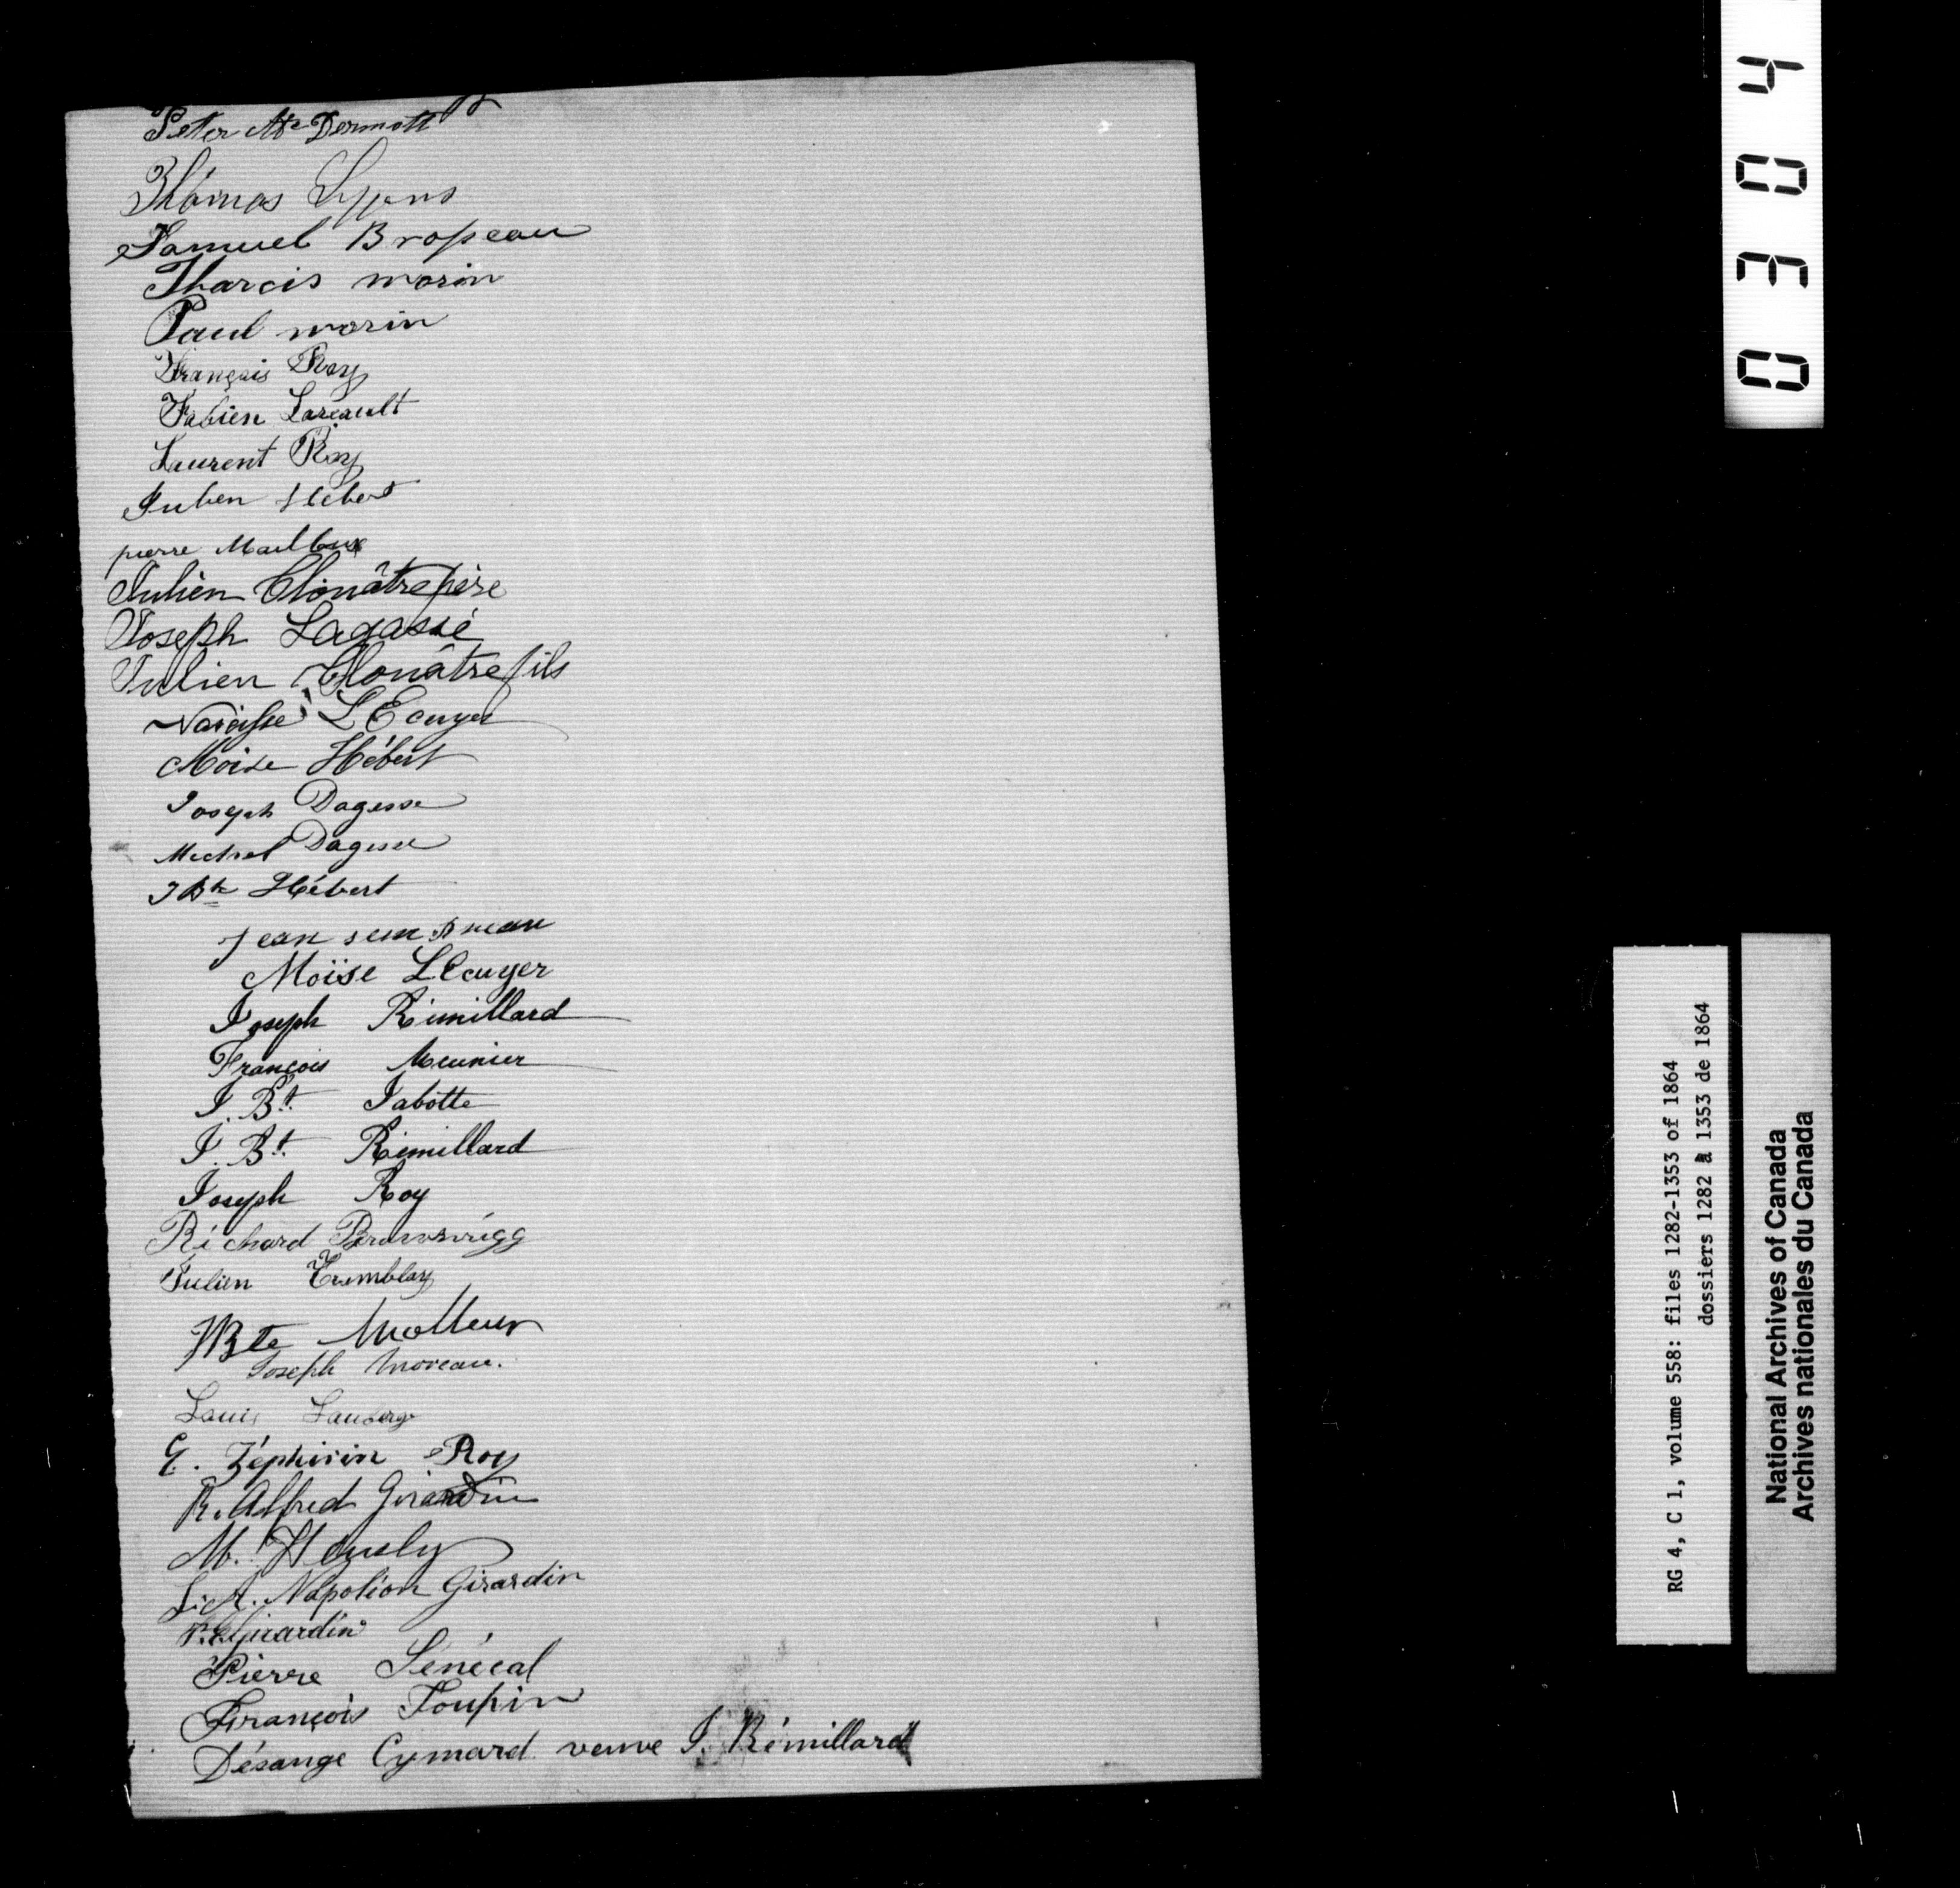 Peter McDermott
Thomas Lyons
Samuel Brosseau
Tharcis morin
Paul morin
François Roy
Fabien Lareault
Laurent Roy
Julien Hébert
pierre Mailloux
Julien Clouâtre père
Joseph Lagassé
Julien Clouâtre fils
Narcisse L'Ecuyer
Moise Hébert
Joseph Dagesse
Michel Dagesse
J Bte Hébert
Jean
Moïse LEcuyer
Joseph Rémillard
François Meunier
J. Bt. Jabotte
J. Bt. Rémillard
Joseph Roy
Richard Brownrigg
Julien Tremblay
JBte Molleur
Joseph Moreau.
Louis Lauberge
G. Zéphirin Roy
R. Alfred Girardin
M. Hensly
L. A. Napoléon Girardin
Girardin
Pierre Sénécal
François Toupin
Désange Cymard veuve J. Rémillard
0304
RG 4, C 1, volume 558: files 1282-1353 of 1864
dossiers 1282 à 1353 de 1864
National Archives of Canada
Archives nationales du Canada